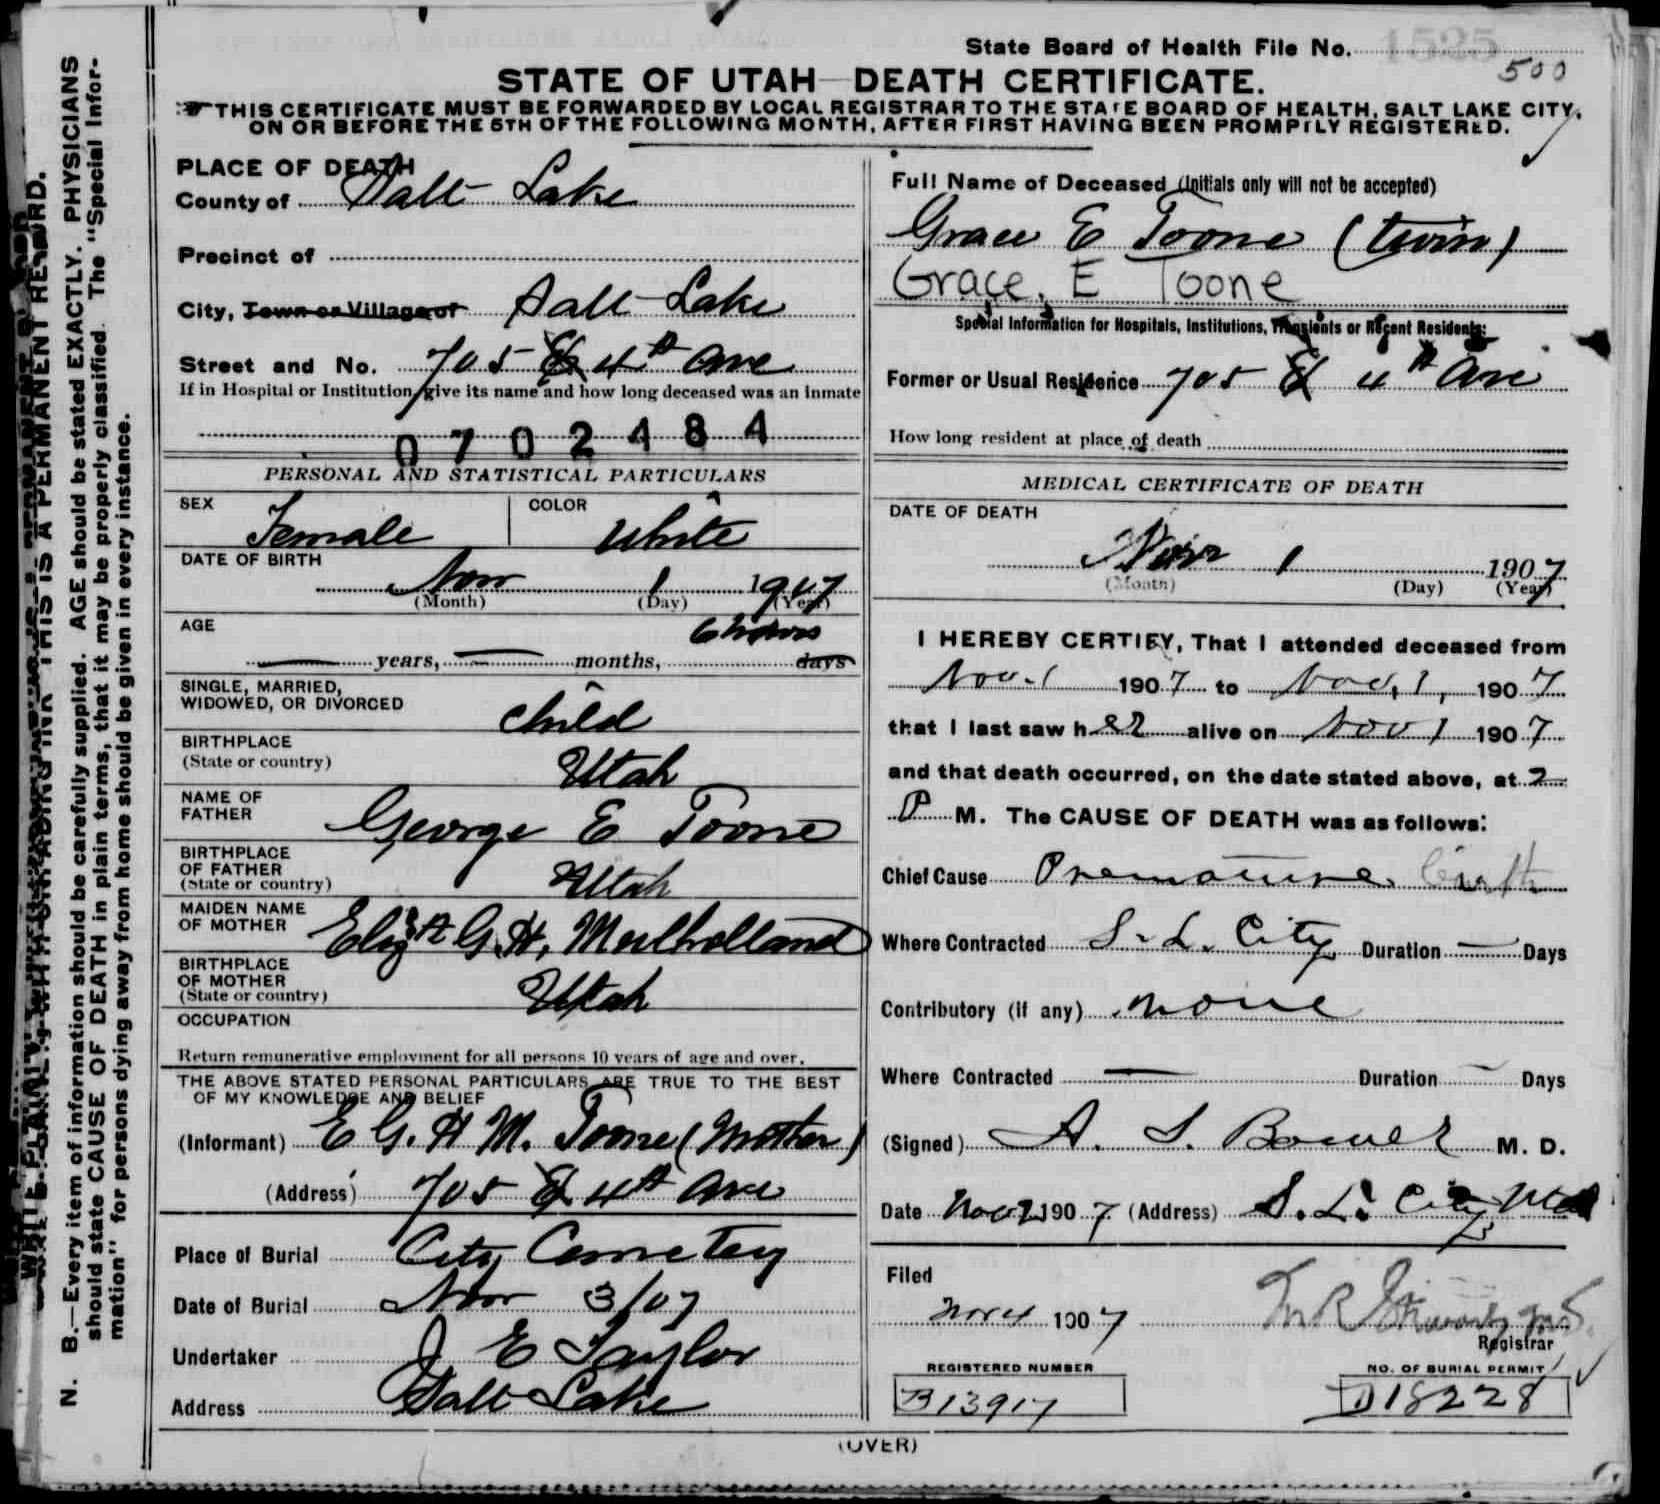 State Board of Health File No. 1525
500
STATE OF UTAH—DEATH CERTIFICATE.
THIS CERTIFICATE MUST BE FORWARDED BY LOCAL REGISTRAR TO THE STATE BOARD OF HEALTH, SALT LAKE CITY,
ON OR BEFORE THE 5TH OF THE FOLLOWING MONTH, AFTER FIRST HAVING BEEN PROMPTLY REGISTERED.
WRITE PLAINLY WITH UNFADING INK—THIS IS A PERMANENT RECORD.
N. B.—Every item of information should be carefully supplied. AGE should be stated EXACTLY. PHYSICIANS
should state CAUSE OF DEATH in plain terms, that it may be properly classified. The "Special Infor-
mation" for persons dying away from home should be given in every instance.
PLACE OF DEATH
County of Salt Lake
Precinct of
City, Town or Village of Salt Lake
Street and No. 705 4th Ave
If in Hospital or Institution, give its name and how long deceased was an inmate
0702484
PERSONAL AND STATISTICAL PARTICULARS
SEX Female COLOR White
DATE OF BIRTH
Nov 1 1907
(Month) (Day) (Year)
AGE 6 hours
years, months, days
SINGLE, MARRIED,
WIDOWED, OR DIVORCED child
BIRTHPLACE
(State or country) Utah
NAME OF
FATHER George E Toone
BIRTHPLACE
OF FATHER
(State or country) Utah
MAIDEN NAME
OF MOTHER Elizth G. H. Mulholland
BIRTHPLACE
OF MOTHER
(State or country) Utah
OCCUPATION
Return remunerative employment for all persons 10 years of age and over.
THE ABOVE STATED PERSONAL PARTICULARS ARE TRUE TO THE BEST
OF MY KNOWLEDGE AND BELIEF
(Informant) E G. H M. Toone (Mother)
(Address) 705 4th Ave
Place of Burial City Cemetery
Date of Burial Nov 3/07
Undertaker J E Taylor
Address Salt Lake
Full Name of Deceased (Initials only will not be accepted)
Grace E Toone (twin)
Grace. E Toone
Special Information for Hospitals, Institutions, Transients or Recent Residents:
Former or Usual Residence 705 4th Ave
How long resident at place of death
MEDICAL CERTIFICATE OF DEATH
DATE OF DEATH
Nov 1 1907
(Month) (Day) (Year)
I HEREBY CERTIFY, That I attended deceased from
Nov. 1 1907 to Nov. 1, 1907
that I last saw her alive on Nov 1 1907
and that death occurred, on the date stated above, at 2
P M. The CAUSE OF DEATH was as follows:
Chief Cause Premature birth
Where Contracted S. L. City Duration — Days
Contributory (if any) none
Where Contracted — Duration — Days
(Signed) A. S. Bower M. D.
Date Nov 2 1907 (Address) S. L. City Utah
Filed
Nov 4 1907
Registrar
REGISTERED NUMBER
B13917
NO. OF BURIAL PERMIT
D18228
(OVER)